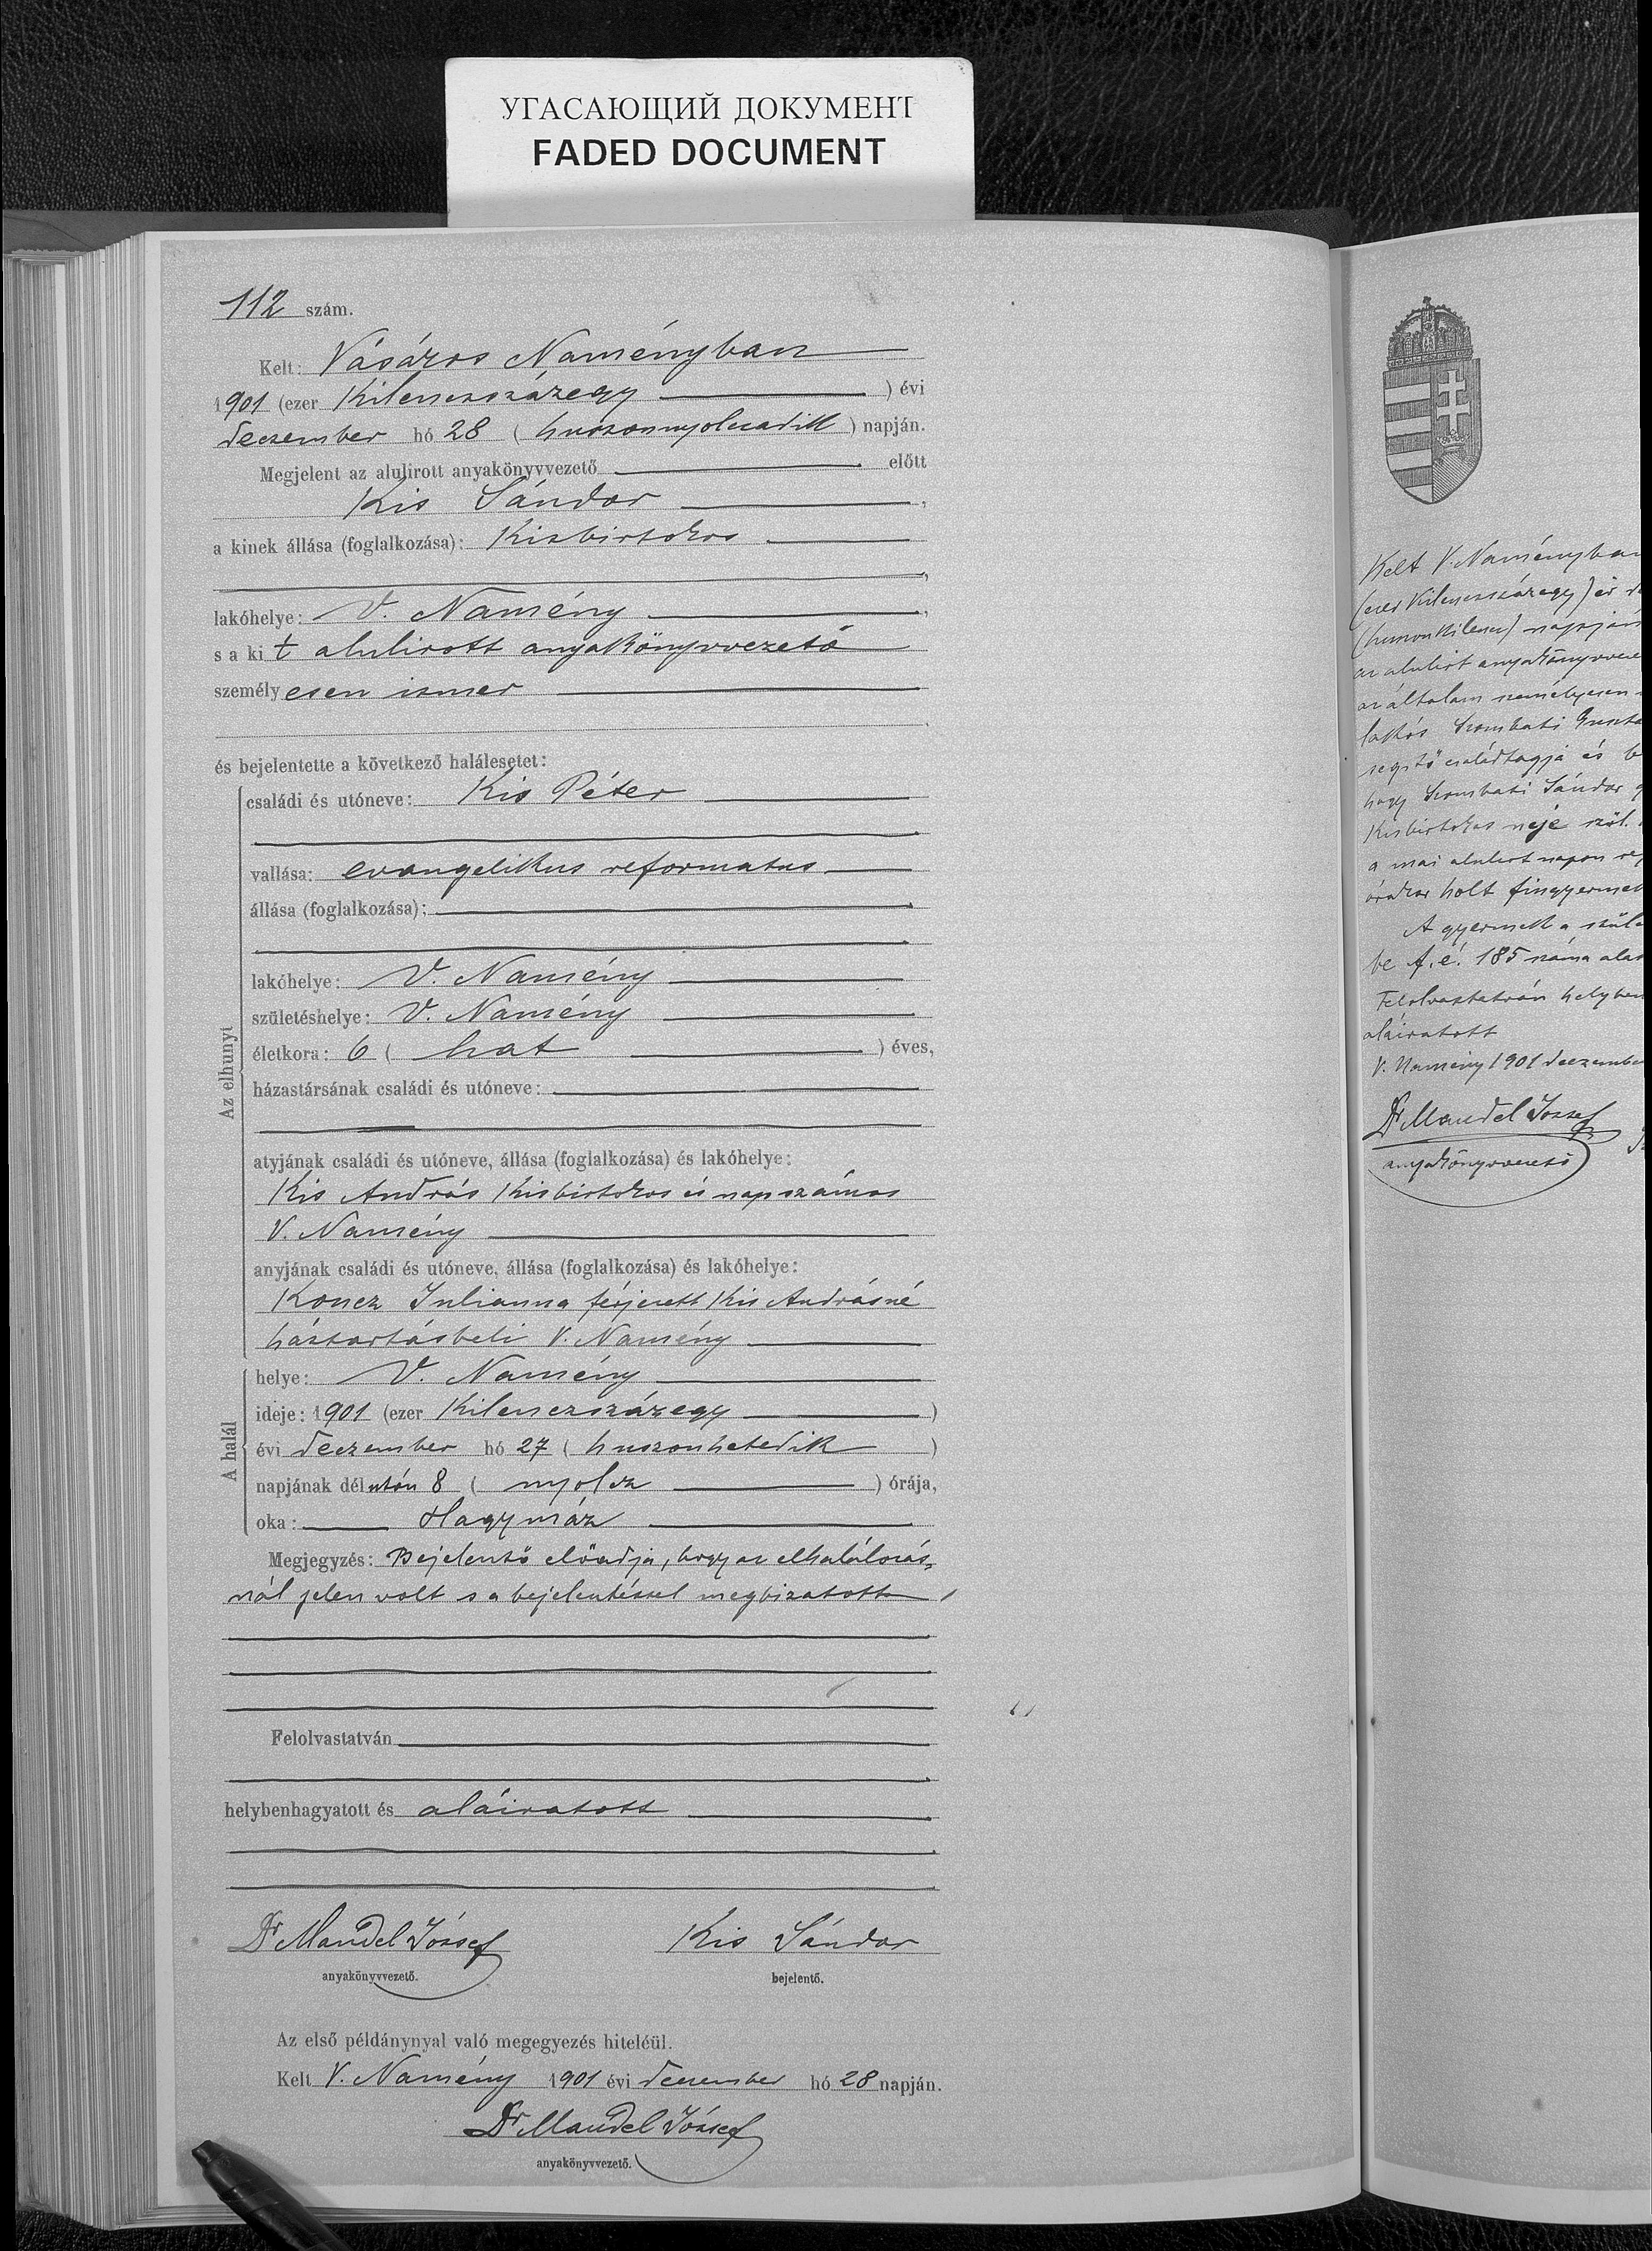 УГАСАЮЩИЙ ДОКУМЕНТ
FADED DOCUMENT
112 szám.
Kelt: Vásáros Naményban
1901 (ezer Kilenczszázegy ) évi
deczember hó 28 ( huszonnyolczadik ) napján.
Megjelent az alulirott anyakönyvvezető előtt
Kis Sándor ,
a kinek állása (foglalkozása): Kisbirtokos
lakóhelye: V. Namény ,
s a kit alulirott anyakönyvvezető
személyesen ismer
és bejelentette a következő halálesetet:
Az elhunyt
családi és utóneve: Kis Péter
vallása: evangelikus reformatus
állása (foglalkozása):
lakóhelye: V. Namény
születéshelye: V. Namény
életkora: 6 ( hat ) éves,
házastársának családi és utóneve:
atyjának családi és utóneve, állása (foglalkozása) és lakóhelye:
Kis András Kisbirtokos és napszámos
V. Namény
anyjának családi és utóneve, állása (foglalkozása) és lakóhelye:
Koncz Julianna férjezett Kis Andrásné
háztartásbeli V. Namény
A halál
helye: V. Namény
ideje: 1901 (ezer Kilenczszázegy )
évi deczember hó 27 ( huszonhetedik )
napjának délután 8 ( nyolcz ) órája,
oka: Hagymáz
Megjegyzés: Bejelentő előadja, hogy az elhalálozás-
nál jelen volt s a bejelentéssel megbizatott
Felolvastatván
helybenhagyatott és aláiratott
Dr Mandel József Kis Sándor
anyakönyvvezető. bejelentő.
Az első példánynyal való megegyezés hiteléül.
Kelt V. Namény 1901 évi deczember hó 28 napján.
Dr Mandel József
anyakönyvvezető.
Kelt V. Naményban
(ezer Kilenczszázegy) év
(huszonkilencz) napján
az alulirt anyakönyvveze
az általam személyesen
lakós Szombati
segitő családtagja és b
hogy Szombati Sándor
Kisbirtokos neje szül.
a mai alulirt napon
órakor holt fingyermek
A gyermek a szül
be f. é. 185 száma alat
Felolvastatván helyben
aláiratott
V. Namény 1901 deczembe
Dr Mandel József
anyakönyvvezető